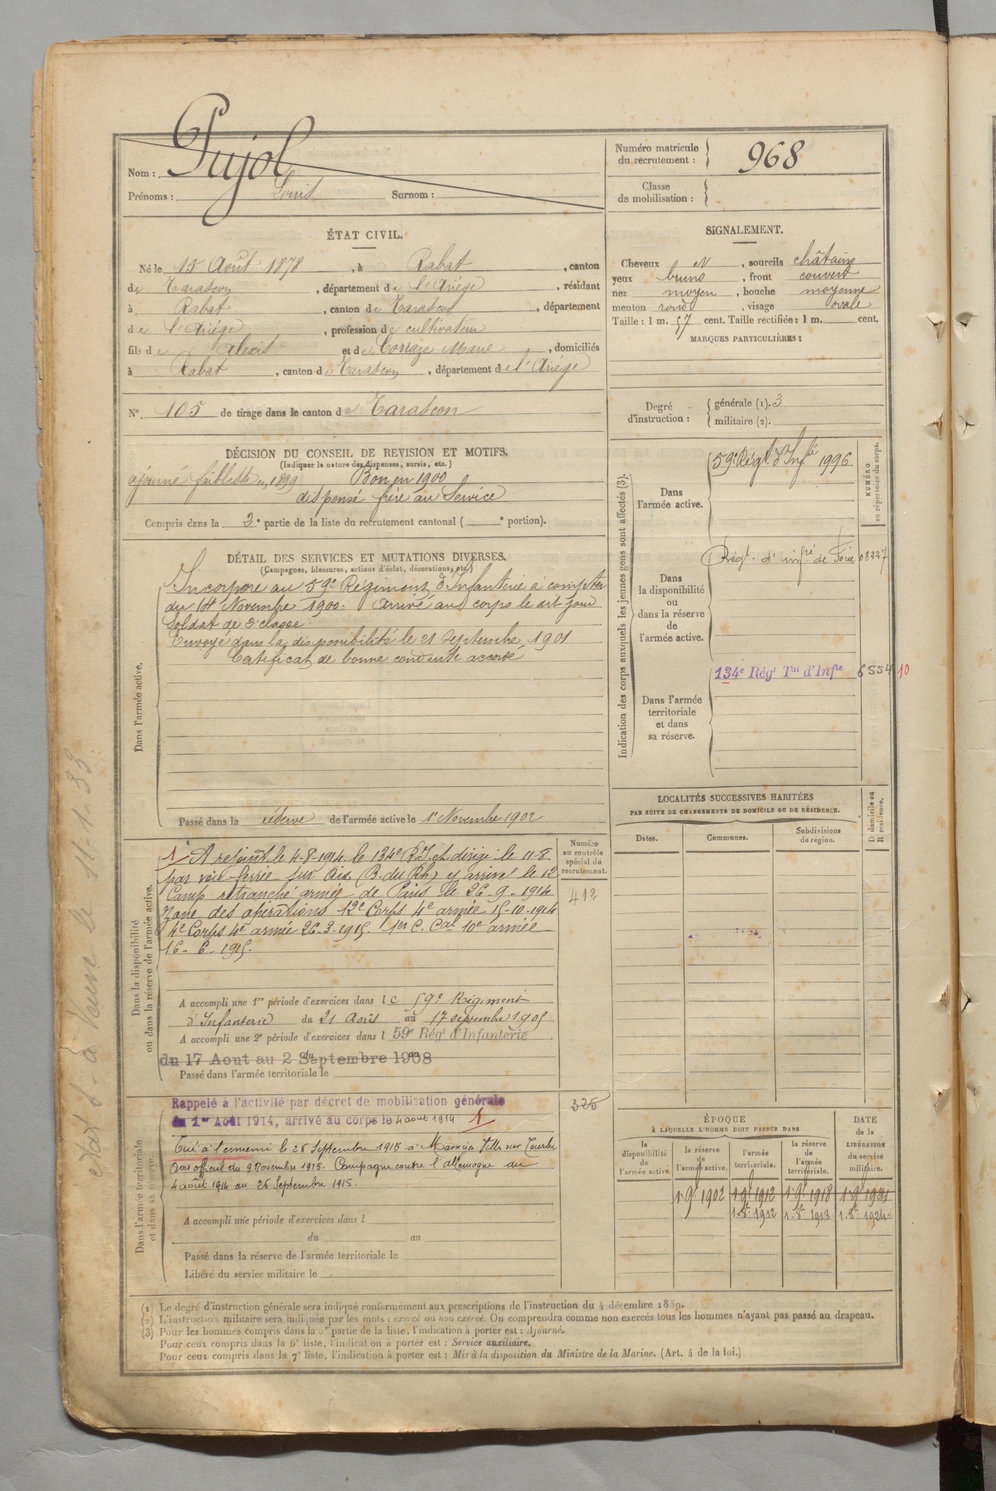 Nom : Pujol
Prénoms : Louis Surnom :
Numéro matricule du recrutement : 968
Classe de mobilisation :
ÉTAT CIVIL.
Né le 15 Août 1878, à Rabat, canton
de Tarascon, département de l'Ariège, résidant
à Rabat, canton de Tarascon, département
de l'Ariège, profession de cultivateur
fils de et de Marie, domiciliés
à Rabat, canton de Tarascon, département de l'Ariège
N° 105 de tirage dans le canton de Tarascon
SIGNALEMENT.
Cheveux N, sourcils châtains
yeux bruns, front couvert
nez moyen, bouche moyenne
menton rond, visage ovale
Taille : 1 m. 57 cent. Taille rectifiée : 1 m. cent.
MARQUES PARTICULIÈRES :
Degré d'instruction : générale (1). 3
militaire (2).
DÉCISION DU CONSEIL DE REVISION ET MOTIFS.
(Indiquer la nature des dispenses, sursis, etc.)
ajourné faiblesse en 1899 Bon en 1900
dispensé frère au Service
Compris dans la 2e partie de la liste du recrutement cantonal ( e portion).
DÉTAIL DES SERVICES ET MUTATIONS DIVERSES.
(Campagnes, blessures, actions d'éclat, décorations, etc.)
Dans l'armée active.
Incorporé au 59e Régiment d'Infanterie à compter
du Novembre 1900. Arrivé au corps le dit jour
Soldat de 2e classe.
Envoyé dans la disponibilité le 21 Septembre 1901
Certificat de bonne conduite accordé
Passé dans la réserve de l'armée active le 1er Novembre 1902
Indication des corps auxquels les jeunes gens sont affectés (3).
NUMÉRO au répertoire du corps.
Dans l'armée active.
59e Régt d'Infie 1996
Dans la disponibilité ou dans la réserve de l'armée active.
Régt d'infrie de Foix 08227
Dans l'armée territoriale et dans sa réserve.
134e Régt Tal d'Infie 6554 10
LOCALITÉS SUCCESSIVES HABITÉES
PAR SUITE DE CHANGEMENTS DE DOMICILE OU DE RÉSIDENCE.
Dates. Communes. Subdivisions de région. D domicile ou R résidence.
Dans la disponibilité ou dans la réserve de l'armée active.
1 A rejoint le 4-8-1914 le 134e et dirigé le 11-8
par voie ferrée sur Aix (B. du Rh) y arrivé le 12
Camp retranché armée de Paris le 26-9-1914
Zone des opérations 12e Corps 4e armée 15-10-1914
4e Corps 4e armée 26-3-1915. 1er C. Cal 10e armée
16-6-1915.
Numéro au contrôle spécial du recrutement.
412
A accompli une 1re période d'exercices dans le 59e Régiment
d'Infanterie du 21 Août au 17 septembre 1905
A accompli une 2e période d'exercices dans l 59e Régt d'Infanterie
du 17 Aout au 2 Septembre 1908
Passé dans l'armée territoriale le
Dans l'armée territoriale et dans sa réserve.
Rappelé à l'activité par décret de mobilisation générale
du 1er Août 1914, arrivé au corps le 4 août 1914 1
326
Tué à l'ennemi le 26 Septembre 1915 à Ville sur Tourbe
avis officiel du 9 Novembre 1915. Campagne contre l'allemagne du
4 août 1914 au 26 Septembre 1915.
A accompli une période d'exercices dans l
du au
Passé dans la réserve de l'armée territoriale le
Libéré du service militaire le
ÉPOQUE
À LAQUELLE L'HOMME DOIT PASSER DANS
DATE de la LIBÉRATION du service militaire.
la disponibilité de l'armée active. la réserve de l'armée active. l'armée territoriale. la réserve de l'armée territoriale.
1 9 1902 1 9 1912 1 9 1918
1 1912 1 1918 1 1924
(1) Le degré d'instruction générale sera indiqué conformément aux prescriptions de l'instruction du 4 décembre 1889.
(2) L'instruction militaire sera indiquée par les mots : exercé ou non exercé. On comprendra comme non exercés tous les hommes n'ayant pas passé au drapeau.
(3) Pour les hommes compris dans la 5e partie de la liste, l'indication à porter est : Ajourné.
Pour ceux compris dans la 6e liste, l'indication à porter est : Service auxiliaire.
Pour ceux compris dans la 7e liste, l'indication à porter est : Mis à la disposition du Ministre de la Marine. (Art. 4 de la loi.)
le 11-1-33